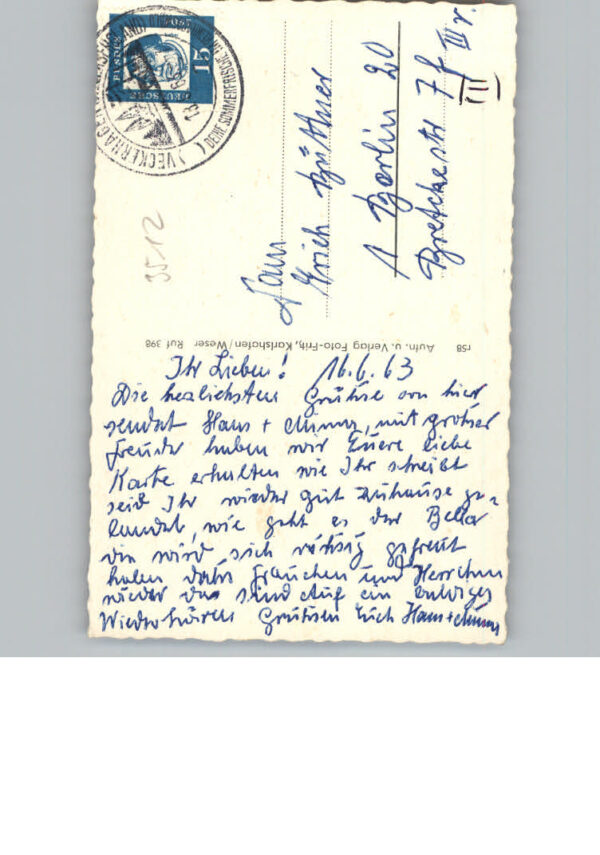 Ihr Lieben! 16.6.63
Die herzlichsten Grüße von hier
sendet Hans + Minna, mit großer
Freude haben wir Euere liebe
Karte erhalten wie Ihr schreibt
seid Ihr wieder gut zuhause ge-
landet, wie geht es der Bella
die wird sich riesig gefreut
haben daß Frauchen und Herrchen
wieder da sind Auf ein baldiges
Wiederhören Grüßen Euch Hans + Minna
Aufn. u. Verlag Foto-Fritz, Karlshafen/Weser Ruf 398
r58
Fam
Erich Büttner
1 Berlin 20
7 f III r.
III
3512
DEUTSCHE
BUNDES
POST
15
VECKERHAGEN
DEINE SOMMERFRISCHE